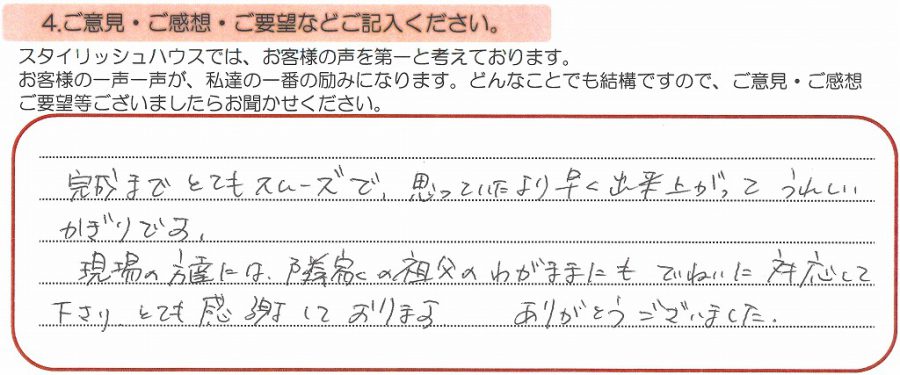 4.ご意見・ご感想・ご要望などご記入ください。
スタイリッシュハウスでは、お客様の声を第一と考えております。
お客様の一声一声が、私達の一番の励みになります。どんなことでも結構ですので、ご意見・ご感想
ご要望等ございましたらお聞かせください。
完成までとてもスムーズで、思っていたより早く出来上がってうれしい
かぎりです。
現場の方達には、隣家の祖父のわがままにもていねいに対応して
下さり、とても感謝しております ありがとうございました。